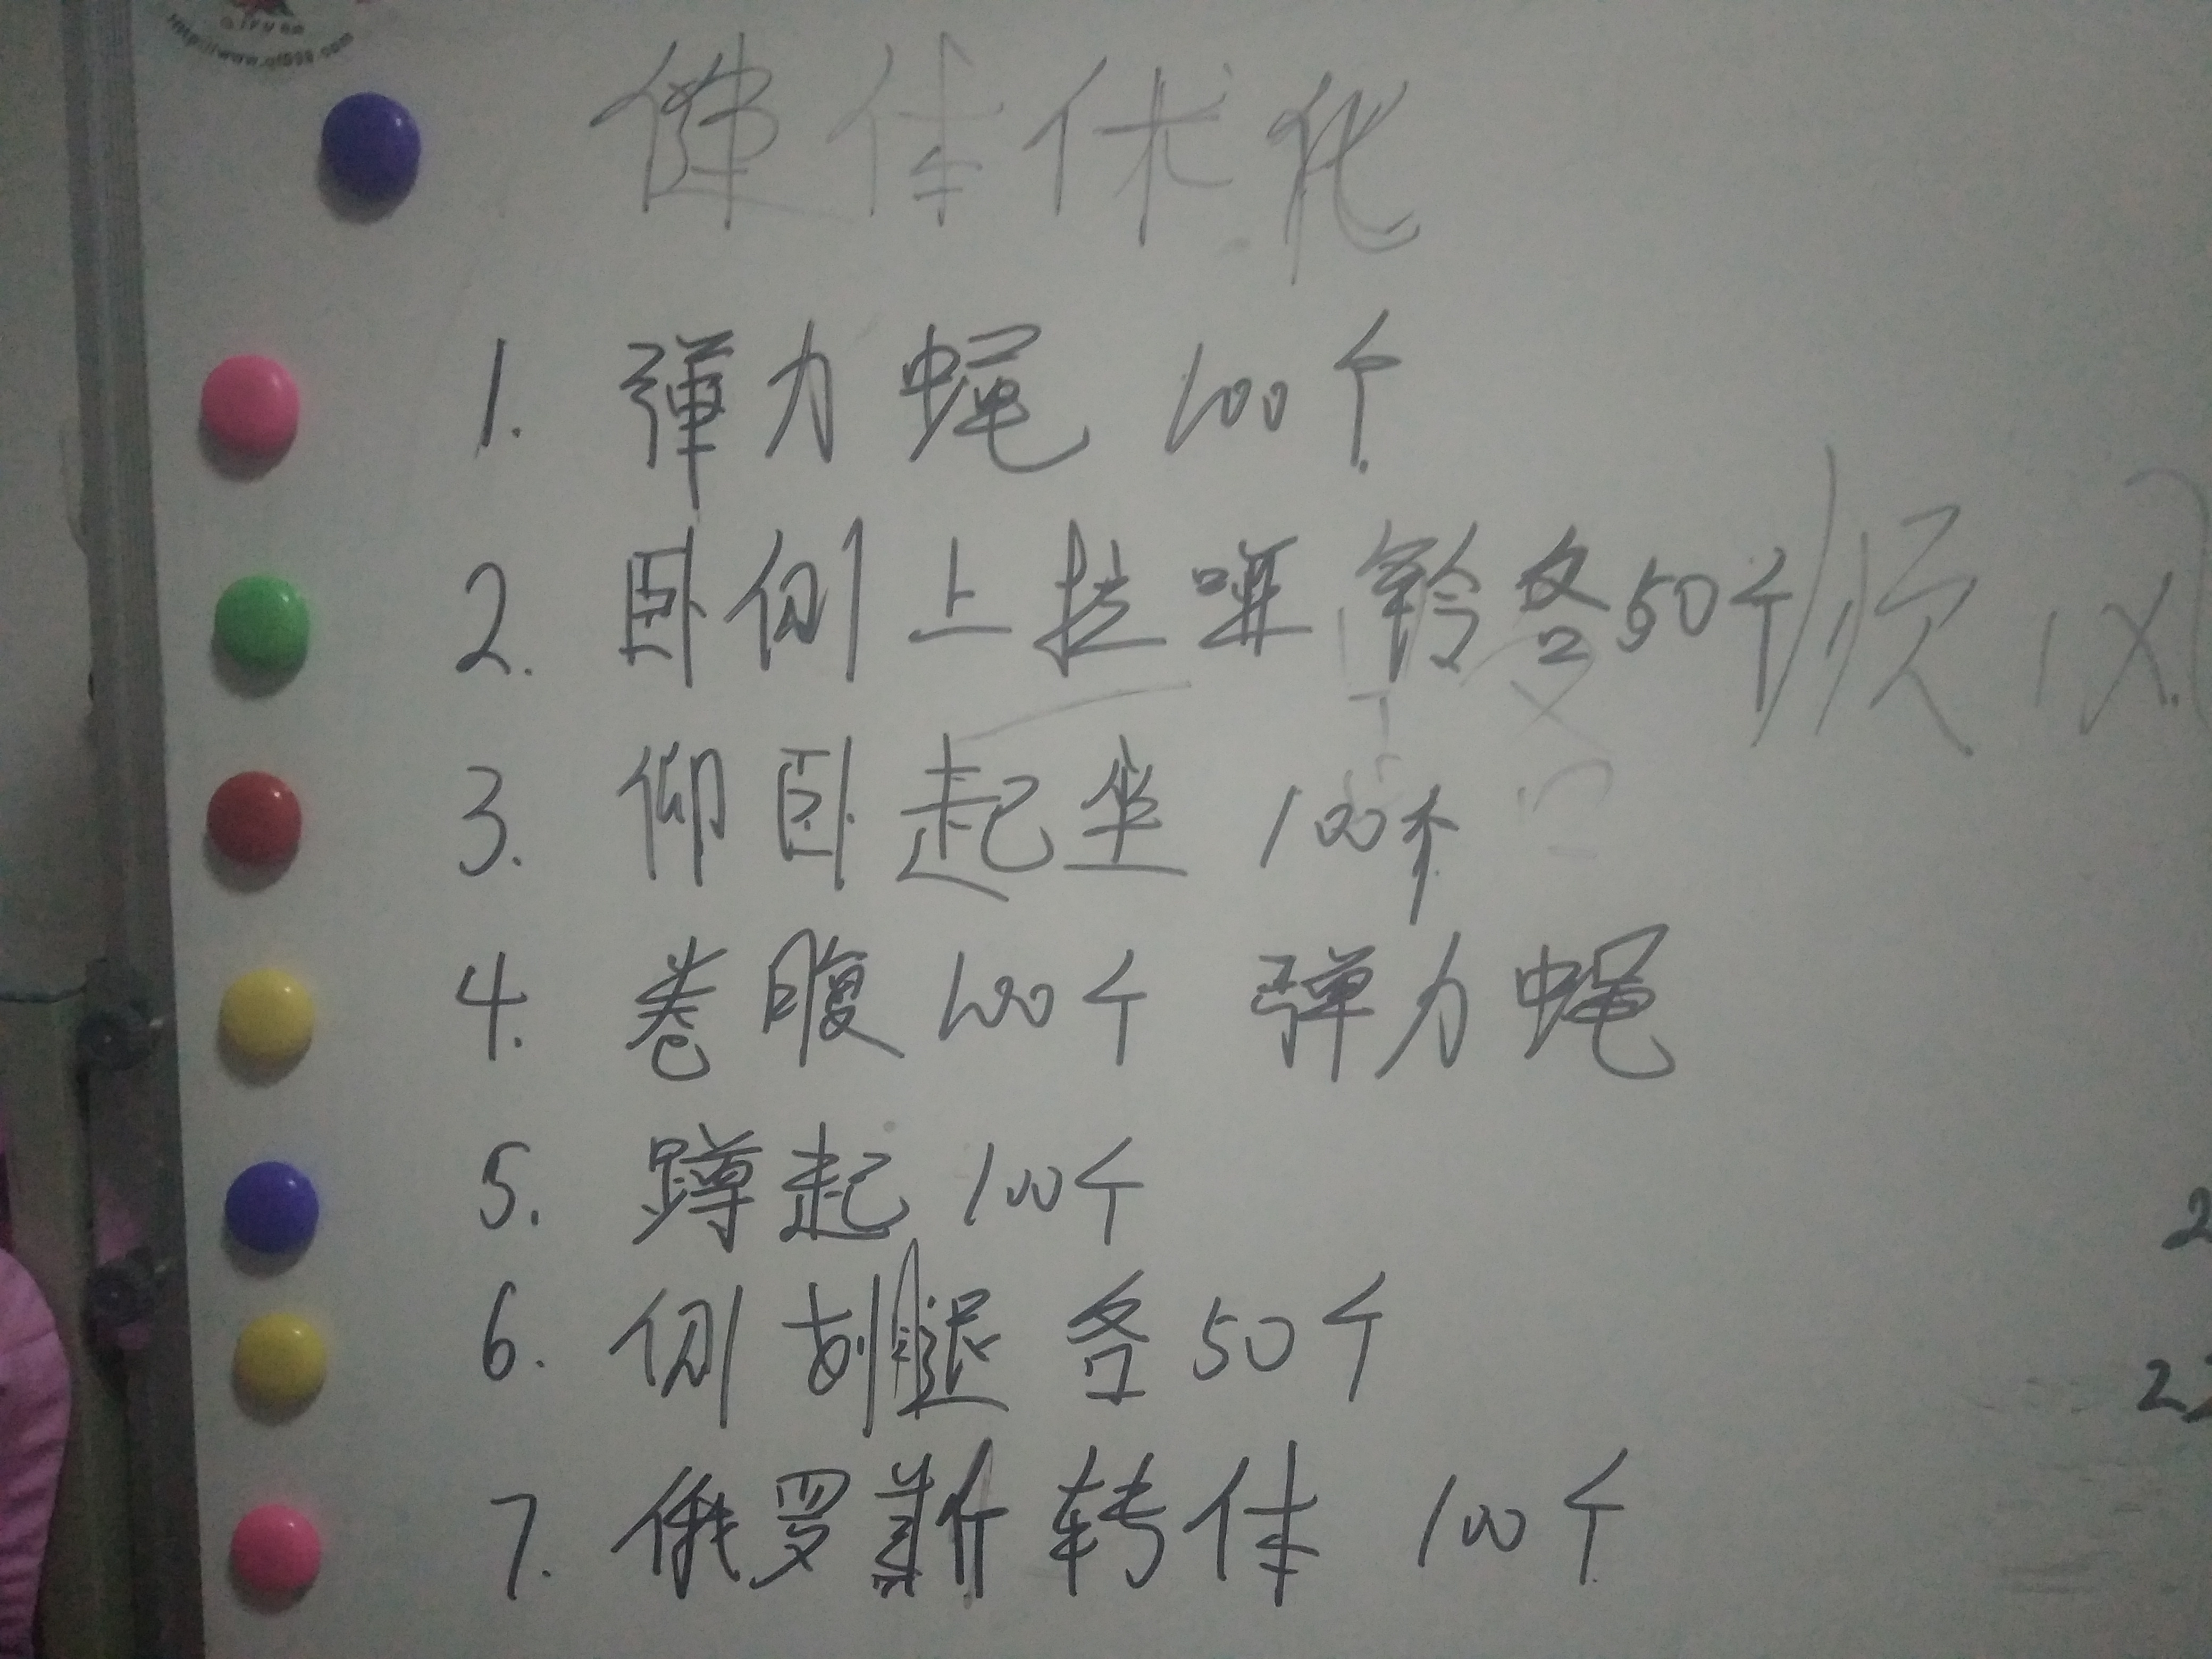 健体优化
1. 弹力蝇 100个
2. 卧侧上拉哑铃各50个
顺风
3. 仰卧起坐 100个
4. 卷腹100个 弹力蝇
5. 蹲起 100个
2
6. 侧划腿各50个
22
7. 俄罗斯转体 100个